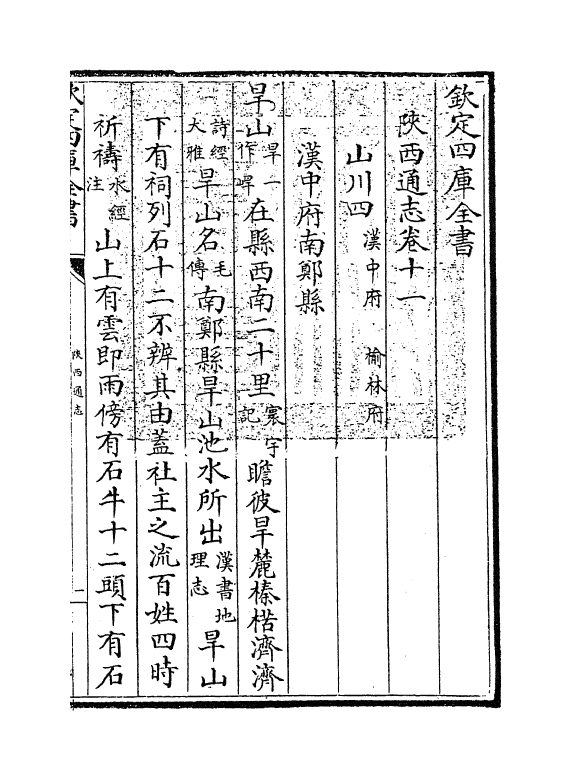 欽定四庫全書
陜西通志卷十一
山川四漢中府 榆林府
漢中府南鄭縣
旱山旱一作在縣西南二十里寰宇記瞻彼旱麓榛楛濟濟
詩經大雅旱山名毛傳南鄭縣旱山池水所出漢書地理志旱山
下有祠列石十二不辨其由蓋社主之流百姓四時
祈禱水經注山上有雲即雨傍有石牛十二頭下有石
欽定四庫全書
陜西通志
一